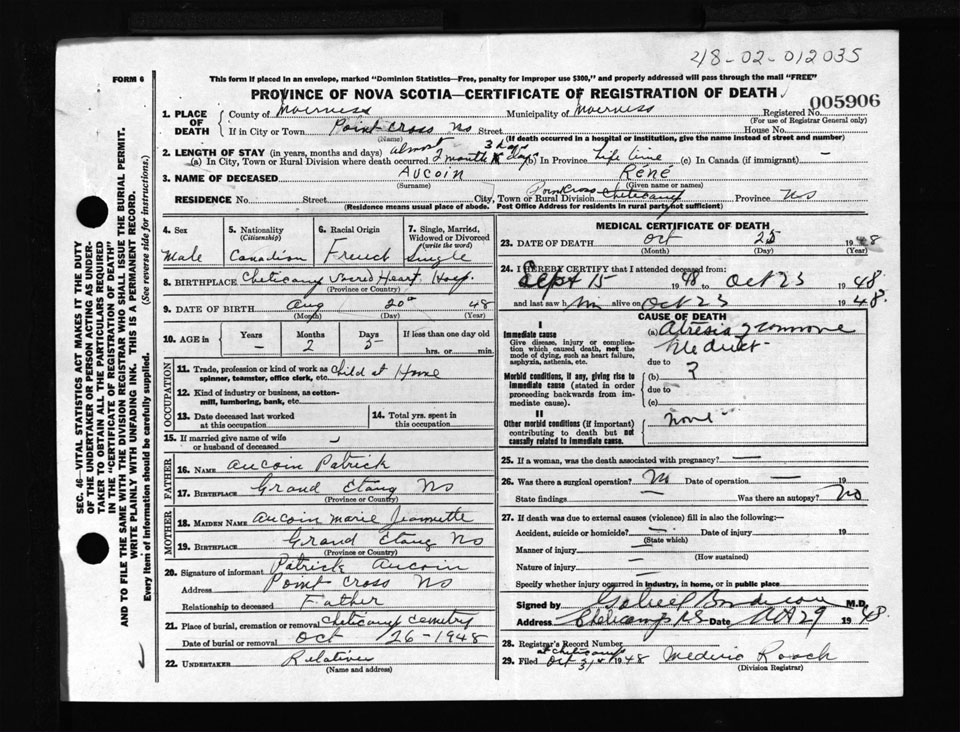 218-02-012035
FORM 6
This form if placed in an envelope, marked "Dominion Statistics—Free, penalty for improper use $300," and properly addressed will pass through the mail "FREE"
PROVINCE OF NOVA SCOTIA—CERTIFICATE OF REGISTRATION OF DEATH
005906
1. PLACE OF DEATH
County of Inverness Municipality of Inverness Registered No.
(For use of Registrar General only)
If in City or Town Point Cross NS Street House No.
(Name) (If death occurred in a hospital or institution, give the name instead of street and number)
2. LENGTH OF STAY (in years, months and days) almost 3 days
(a) In City, Town or Rural Division where death occurred 2 months days (b) In Province Life time (c) In Canada (if immigrant) —
3. NAME OF DECEASED Aucoin René
(Surname) (Given name or names)
RESIDENCE No. Street City, Town or Rural Division Point Cross Cheticamp Province NS
(Residence means usual place of abode. Post Office Address for residents in rural parts not sufficient)
4. Sex
Male
5. Nationality
(Citizenship)
Canadian
6. Racial Origin
French
7. Single, Married, Widowed or Divorced
(write the word)
Single
8. BIRTHPLACE Cheticamp Sacred Heart Hosp.
(Province or Country)
9. DATE OF BIRTH Aug 20 48
(Month) (Day) (Year)
10. AGE in
Years Months Days If less than one day old
— 2 5 hrs. or min.
OCCUPATION
11. Trade, profession or kind of work as spinner, teamster, office clerk, etc. Child at Home
12. Kind of industry or business, as cotton-mill, lumbering, bank, etc.
13. Date deceased last worked at this occupation
14. Total yrs. spent in this occupation
15. If married give name of wife or husband of deceased
FATHER
16. NAME Aucoin Patrick
17. BIRTHPLACE Grand Etang NS
(Province or Country)
MOTHER
18. MAIDEN NAME Aucoin Marie Jeannette
19. BIRTHPLACE Grand Etang NS
(Province or Country)
20. Signature of informant Patrick Aucoin
Address Point Cross NS
Relationship to deceased Father
21. Place of burial, cremation or removal Cheticamp cemetry
Date of burial or removal Oct 26-1948
22. UNDERTAKER Relatives
(Name and address)
MEDICAL CERTIFICATE OF DEATH
23. DATE OF DEATH Oct 25 1948
(Month) (Day) (Year)
24. I HEREBY CERTIFY that I attended deceased from:
Sept 15 1948 to Oct 23 1948
and last saw him alive on Oct 23 1948
CAUSE OF DEATH
I
Immediate cause
Give disease, injury or complication which caused death, not the mode of dying, such as heart failure, asphyxia, asthenia, etc.
(a) Atresia
due to
Morbid conditions, if any, giving rise to immediate cause (stated in order proceeding backwards from immediate cause).
(b) ?
due to
(c)
II
Other morbid conditions (if important) contributing to death but not causally related to immediate cause.
None
25. If a woman, was the death associated with pregnancy? —
26. Was there a surgical operation? No Date of operation — 19
State findings — Was there an autopsy? No
27. If death was due to external causes (violence) fill in also the following:—
Accident, suicide or homicide? — Date of injury 19
(State which)
Manner of injury —
(How sustained)
Nature of injury —
Specify whether injury occurred in industry, in home, or in public place
Signed by Gabriel M.D.
Address Cheticamp NS Date Oct 29 1948
28. Registrar's Record Number
at Cheticamp
29. Filed Oct 31st 1948 Roach
(Division Registrar)
SEC. 46—VITAL STATISTICS ACT MAKES IT THE DUTY OF THE UNDERTAKER OR PERSON ACTING AS UNDERTAKER TO OBTAIN ALL THE PARTICULARS REQUIRED IN THE "CERTIFICATE OF REGISTRATION OF DEATH" AND TO FILE THE SAME WITH THE DIVISION REGISTRAR WHO SHALL ISSUE THE BURIAL PERMIT.
WRITE PLAINLY WITH UNFADING INK. THIS IS A PERMANENT RECORD.
Every item of information should be carefully supplied. (See reverse side for instructions.)